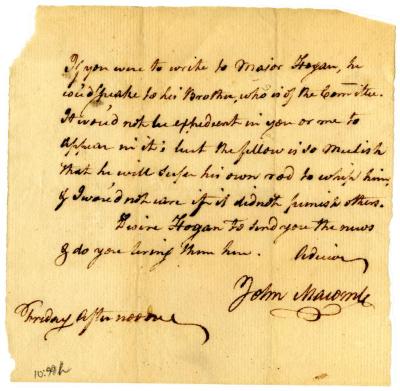 If you were to write to Major Hogan, he
wou'd speake to his Brother, who is of the Committee.
It wou'd not be expedient in you or me to
appear in it; but the fellow is so Mulish
that he will suffer his own rod to whip him,
& I wou'd not care if it did not punish others.
Desire Hogan to send you the news
& do you bring them here. Adieu
John Macomb
Friday Afternoone